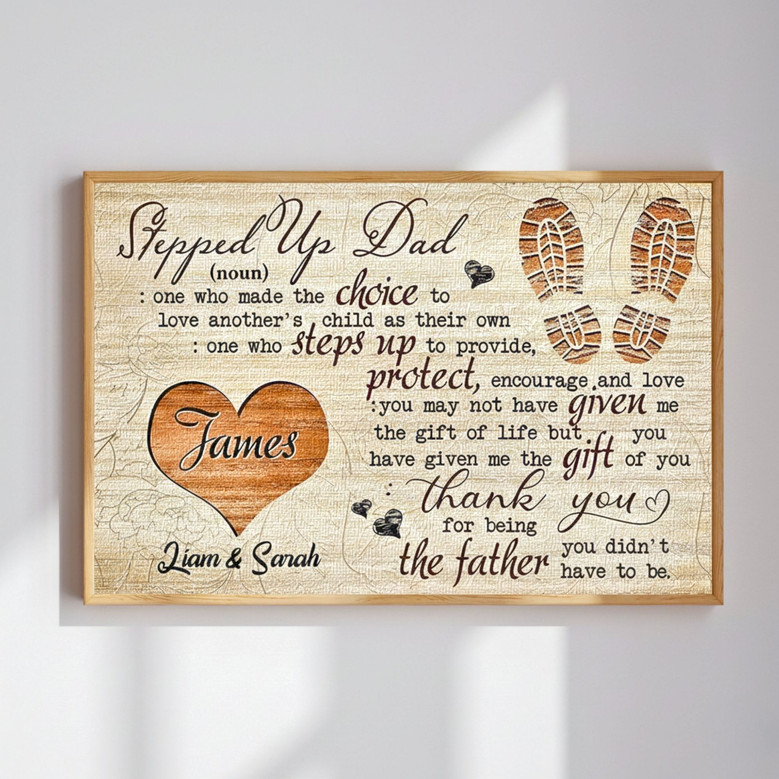 Stepped Up Dad
(noun)
: one who made the choice to
love another's child as their own
: one who steps up to provide,
protect, encourage and love
:you may not have given me
the gift of life but you
have given me the gift of you
: thank you
for being
the father you didn't
have to be.
James
Liam & Sarah